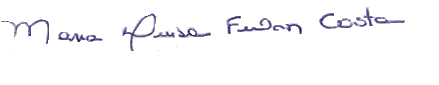 Maria Luisa Furlan Costa